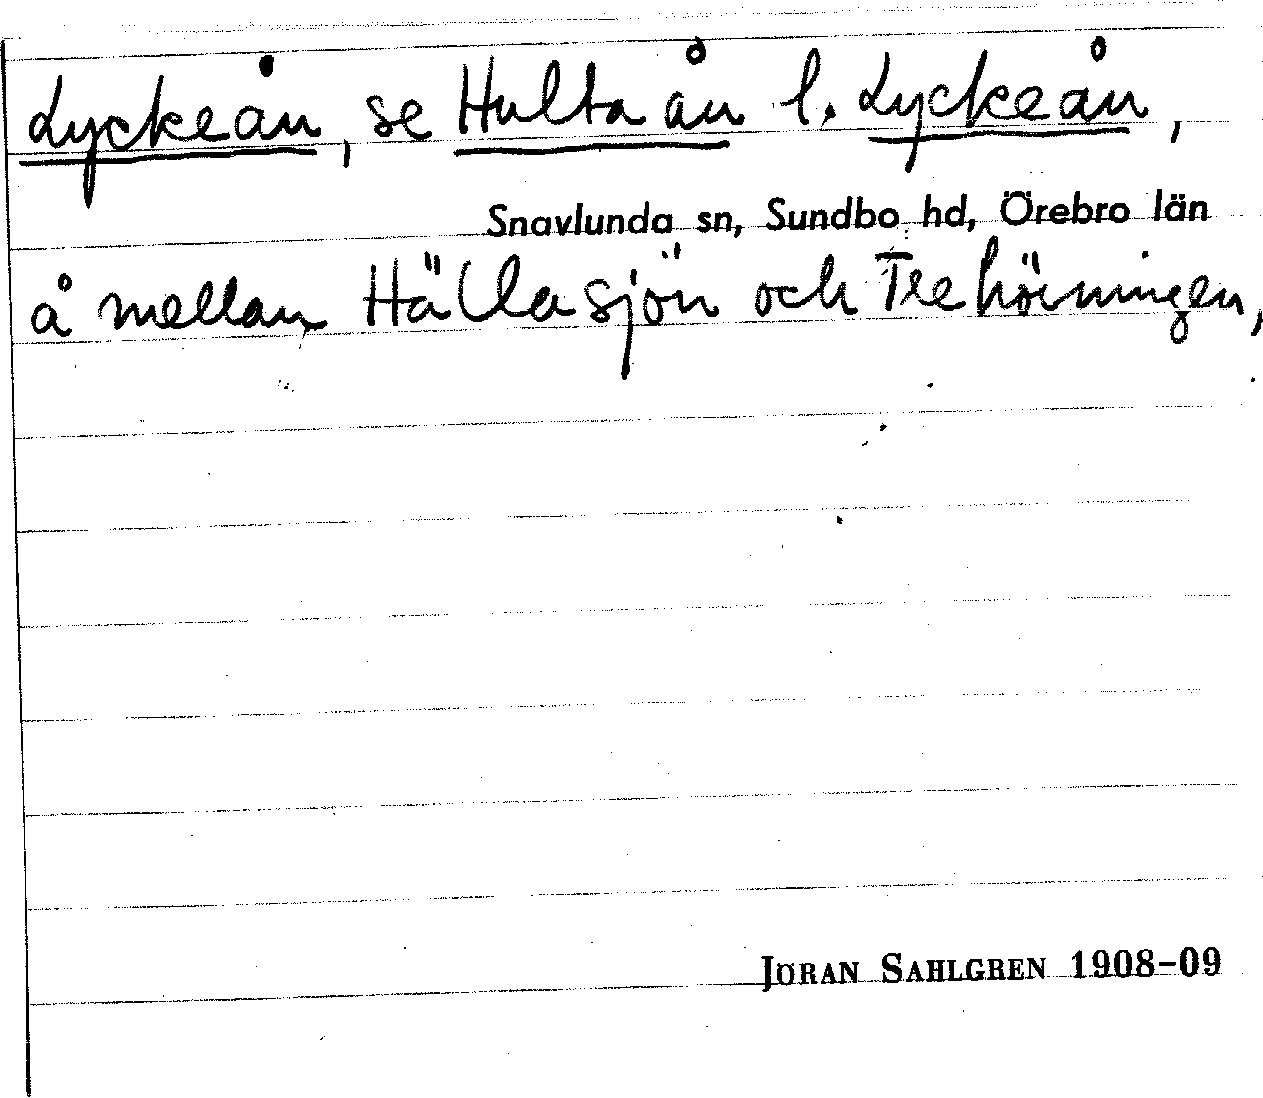 Lyckeån, se Hulta ån l. Lyckeån,
Snavlunda sn, Sundbo hd, Örebro län
å mellan Hällasjön och Trehörningen,
JÖRAN SAHLGREN 1908-09